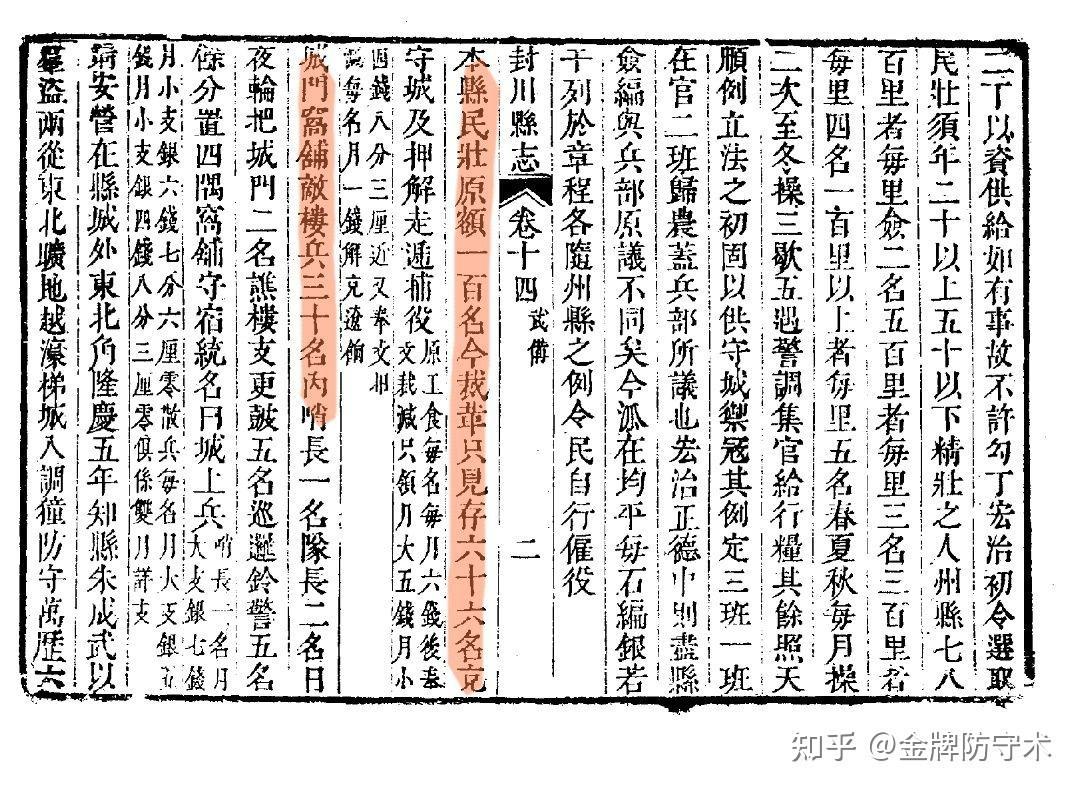 二丁以資供給如有事故不許勾丁宏治初令選取
民壯須年二十以上五十以下精壯之人州縣七八
百里者每里僉二名五百里者每里三名三百里者
每里四名一百里以上者每里五名春夏秋每月操
二次至冬操三歇五遇警調集官給行糧其餘照天
順例立法之初固以供守城禦冦其例定三班一班
在官二班歸農蓋兵部所議也宏治正德中則盡縣
僉編與兵部原議不同矣今派在均平每石編銀若
干列於章程各隨州縣之例令民自行僱役
封川縣志 卷十四 武備 二
本縣民壯原額一百名今裁革只見存六十六名充
守城及押解走遞捕役 原工食每名每月六錢後奉
文裁減只領月大五錢月小
四錢八分三厘近又奉文扣
每名月一錢解充遼餉
城門窩鋪敵樓兵三十名內哨長一名隊長二名日
夜輪把城門二名譙樓支更鼓五名巡邏鈴警五名
餘分置四隅窩鋪守宿統名曰城上兵 哨長一名月
大支銀七錢
月小支銀六錢七分六厘零散兵每名月大支銀五
錢月小支銀四錢八分三厘零俱係雙月詳支
安營在縣城外東北角隆慶五年知縣朱成武以
羣盜兩從東北曠地越濠梯城入調獞防守萬歷六
知乎 @金牌防守术